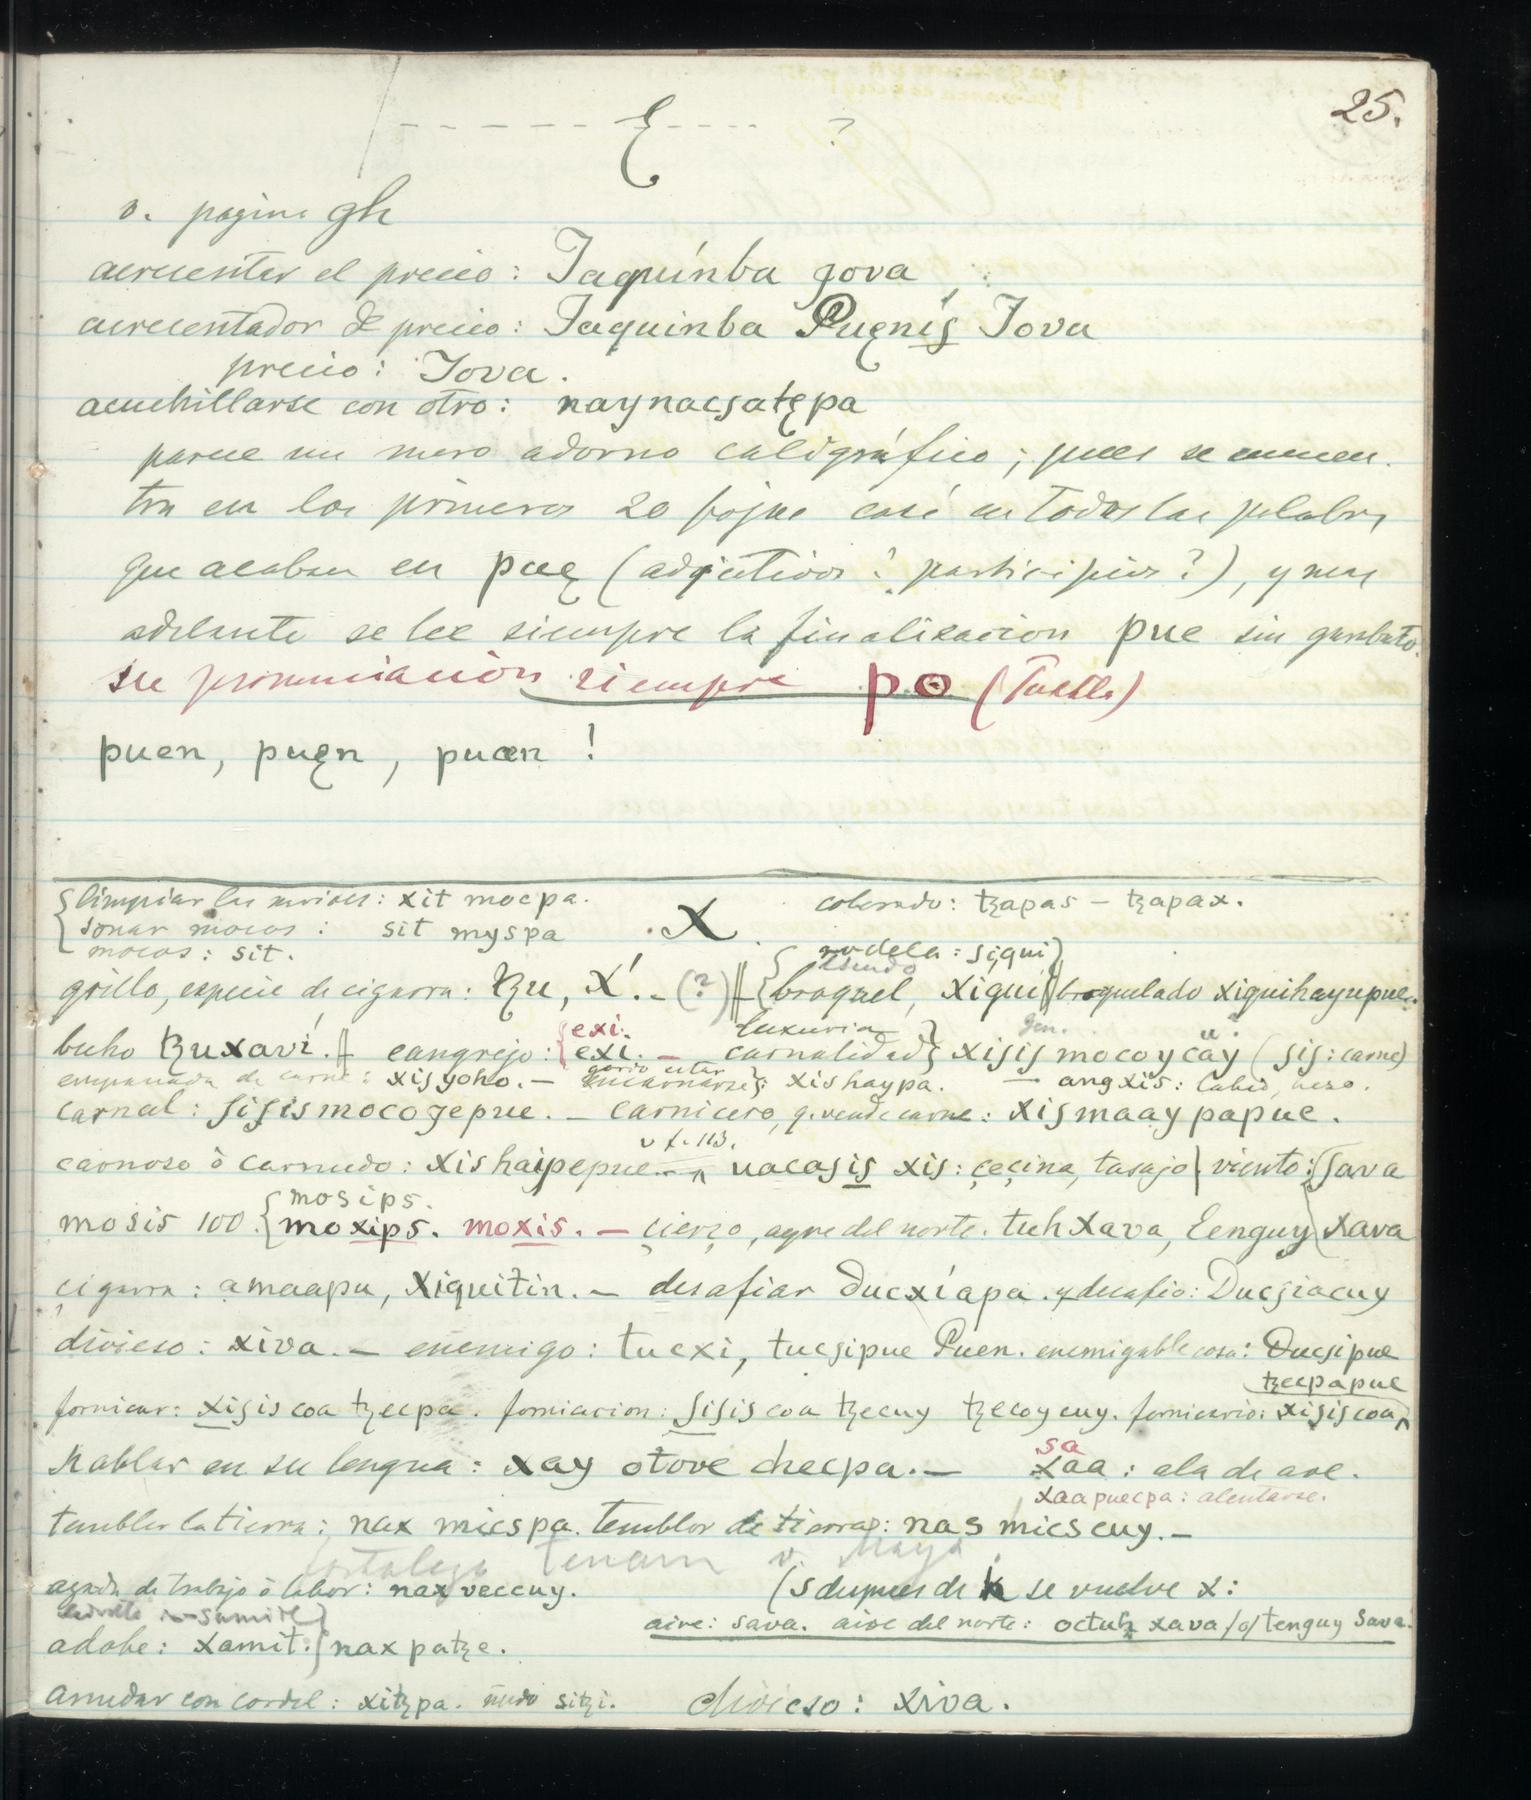 25.
- - - - - - Ę - - - - ?
v. pagina gh
acrecentar el precio: Jaquínba gova
acrecentador de precio: Jaquinba Puęnis Jova
precio: Jova.
acuchillarse con otro: naynacsatępa
parece un mero adorno caligráfico; pues se encuen-
tra en los primeros 20 fojas casi en todas las palabras
que acaban en pueę (adjetivos? participios?), y mas
adelante se lee siempre la finalizacion pue sin garabato.
su pronunciación siempre po
puen, puęn, puæn !
limpiar las narices: xit mocpa.
colorado: tzapas - tzapax.
sonar mocos: sit myspa
X
mocos: sit.
rodela: siqui
escudo
grillo, especie de cigarra: tzu, X́. - (?) broquel, xiqui broquelado xiquihayupue.
exi.
luxuria
gen.
buho tzuxaví. cangrejo: exi. - carnalidad xisis mocoycüy (sis: carne)
empanada de carne: xisyoho. - encarnarse: xishaypa. - angxis: labio, beso.
carnal: sisismocogepue. - carnicero, q. vende carne: xismaaypapue.
v f. 113.
carnoso ò carnudo: xishaipepue - uacasis xis: çeçina, tasajo viento: sava
mosips.
mosis 100 moxips. moxis. - çierço, ayre del norte. tuhxava, tenguy xava
çigarra: amaapu, xiquitin. - desafiar ducxíapa. y desafio: Ducsiacuy
divieso: xiva. - enemigo: tucxi, tucsipue Puen. enemigable cosa: Ducsipue
tzecpapue
fornicar: xisis coa tzecpa. fornicacion: sisis coa tzecuy tzecoycuy. fornicario: xisiscoa
sa
hablar en su lengua: xay otove checpa. - xaa: ala de ave.
xaapuecpa: alentarse.
temblar la tierra: nax micspa. temblor de tierra: nas micscuy. -
fortaleza tenam v. Maya
azada de trabajo ò labor: nax veccuy.
(s despues de h se vuelve x:
samitl
aire: sava. aire del norte: octuh xava /o/ tenguy sava.
adobe: xamit. nax patze.
anudar con cordel: xitzpa. ñudo sitzi.
divieso: xiva.